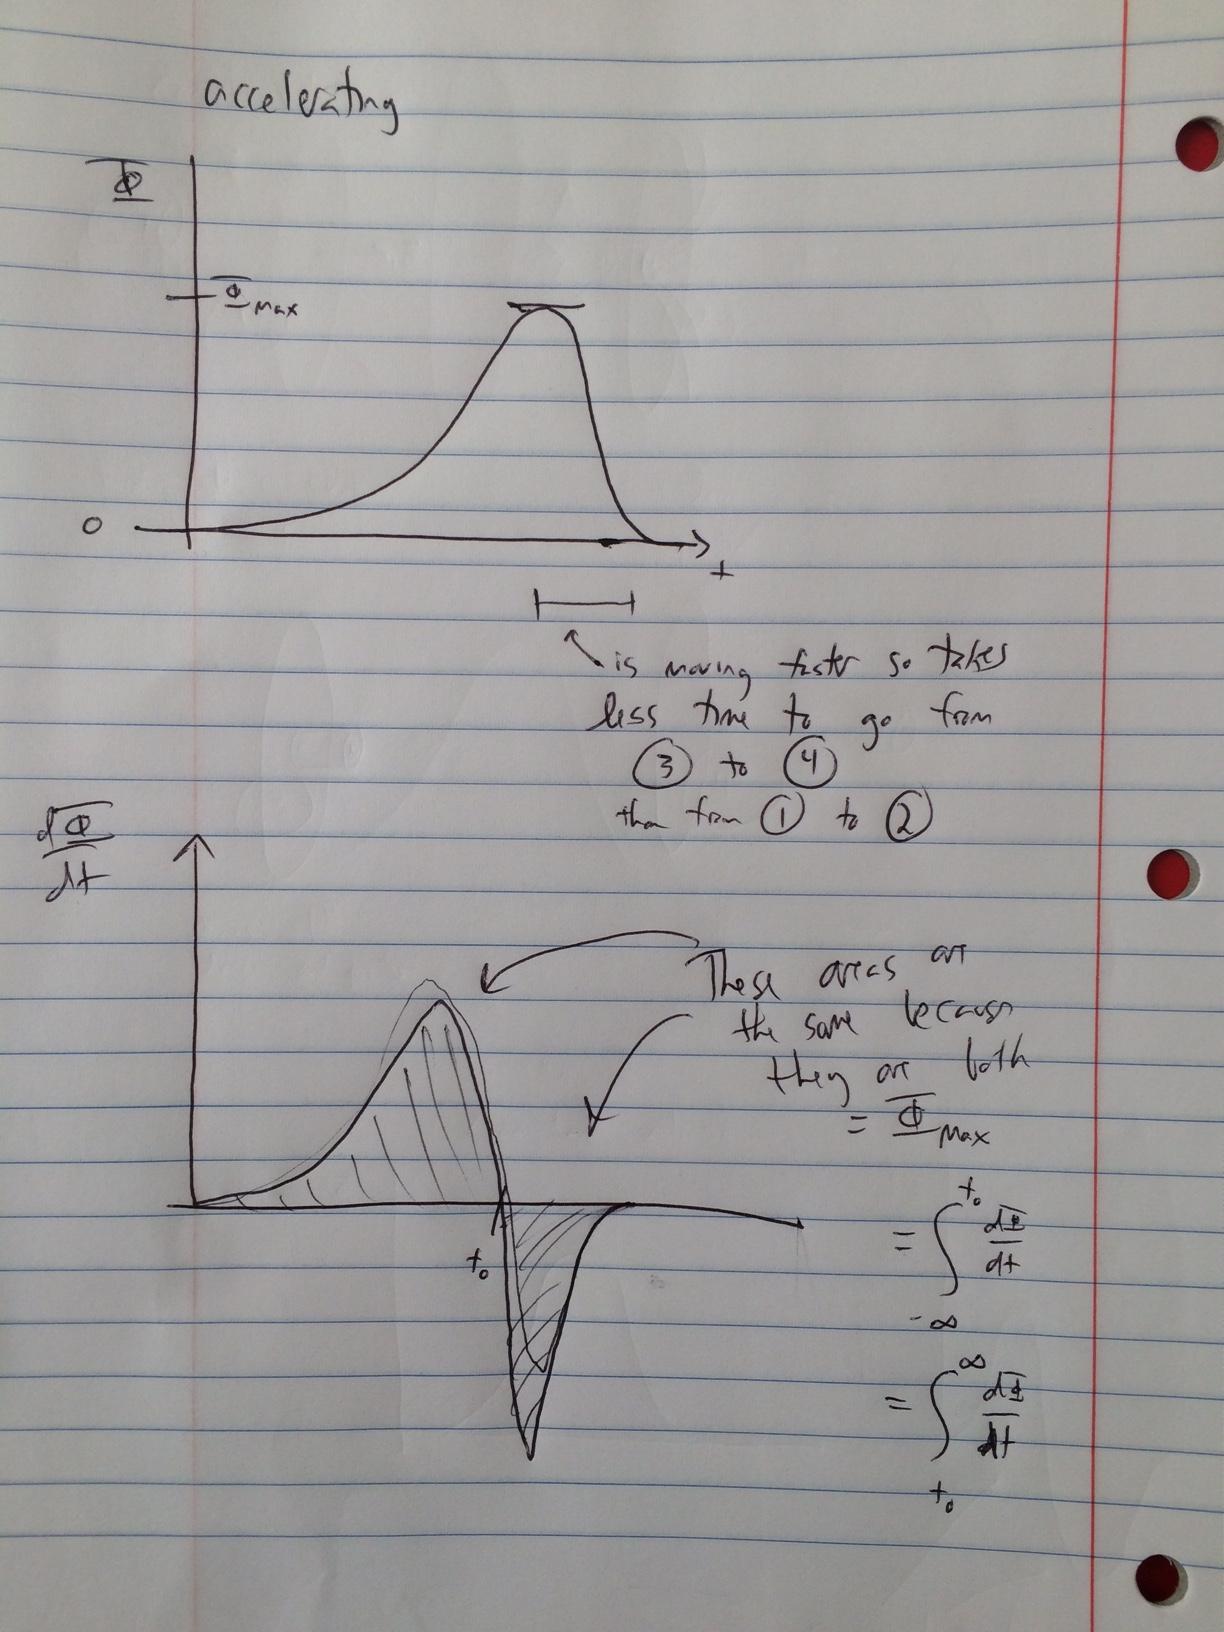 accelerating
Φ
Φ Max
0
t
is moving faster so takes
less time to go from
③ to ④
than from ① to ②
dΦ
dt
These areas are
the same because
they are both
= Φ Max
t₀
= ∫ dΦ
dt
-∞
∞
= ∫ dΦ
dt
t₀
t₀